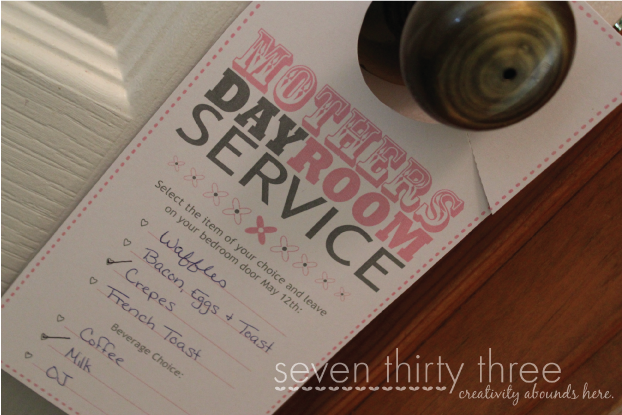 MOTHERS
DAY ROOM
SERVICE
Select the item of your choice and leave
on your bedroom door May 12th:
Waffles
Bacon, Eggs + Toast
Crepes
French Toast
Beverage Choice:
Coffee
Milk
OJ
seven thirty three
creativity abounds here.